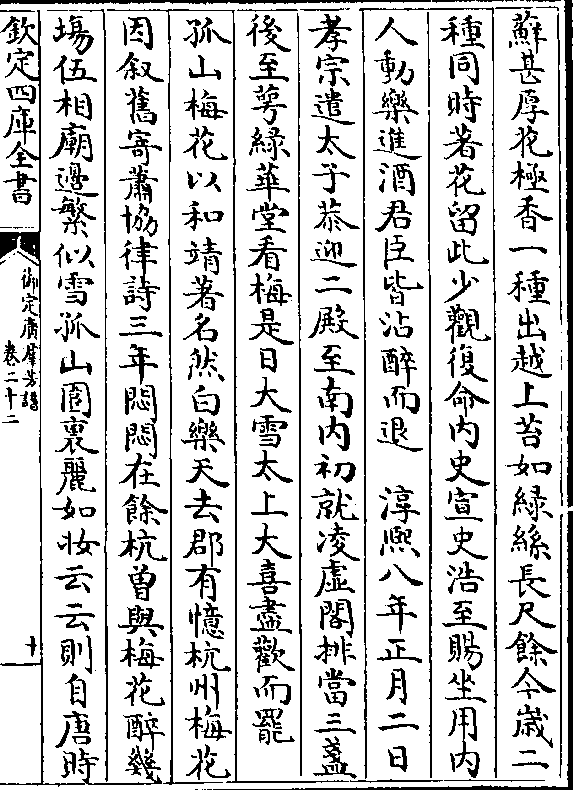 蘇甚厚花極香一種出越上苔如緑絲長尺餘今歳二
種同時著花留此少觀復命内史宣史浩至賜坐用内
人動樂進酒君臣皆沾醉而退　淳熙八年正月二日
孝宗遣太子恭迎二殿至南内初就凌虛閣排當三盞
後至萼緑華堂看梅是日大雪太上大喜盡歡而罷
孤山梅花以和靖著名然白樂天去郡有憶杭州梅花
因叙舊寄蕭協律詩三年悶悶在餘杭曽與梅花醉幾
塲伍相廟邊繁似雪孤山園裏麗如妝云云則自唐時
欽定四庫全書
御定廣羣芳譜
卷二十二
十